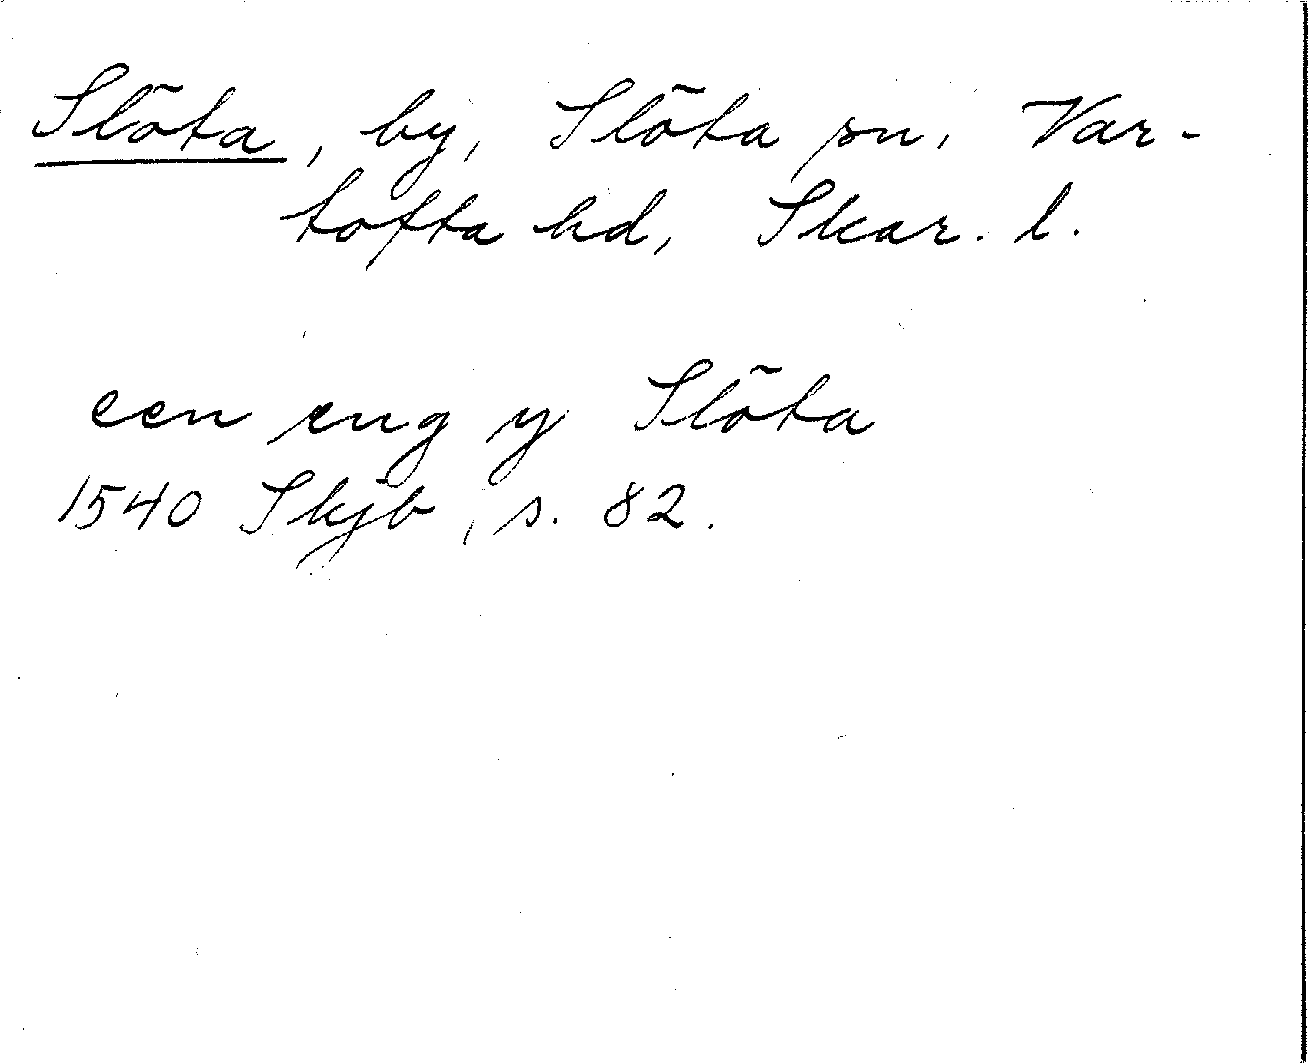 Slöta, by, Slöta sn, Var-
tofta hd, Skar. l.
een eng y Slöta
1540 Skjb, s. 82.